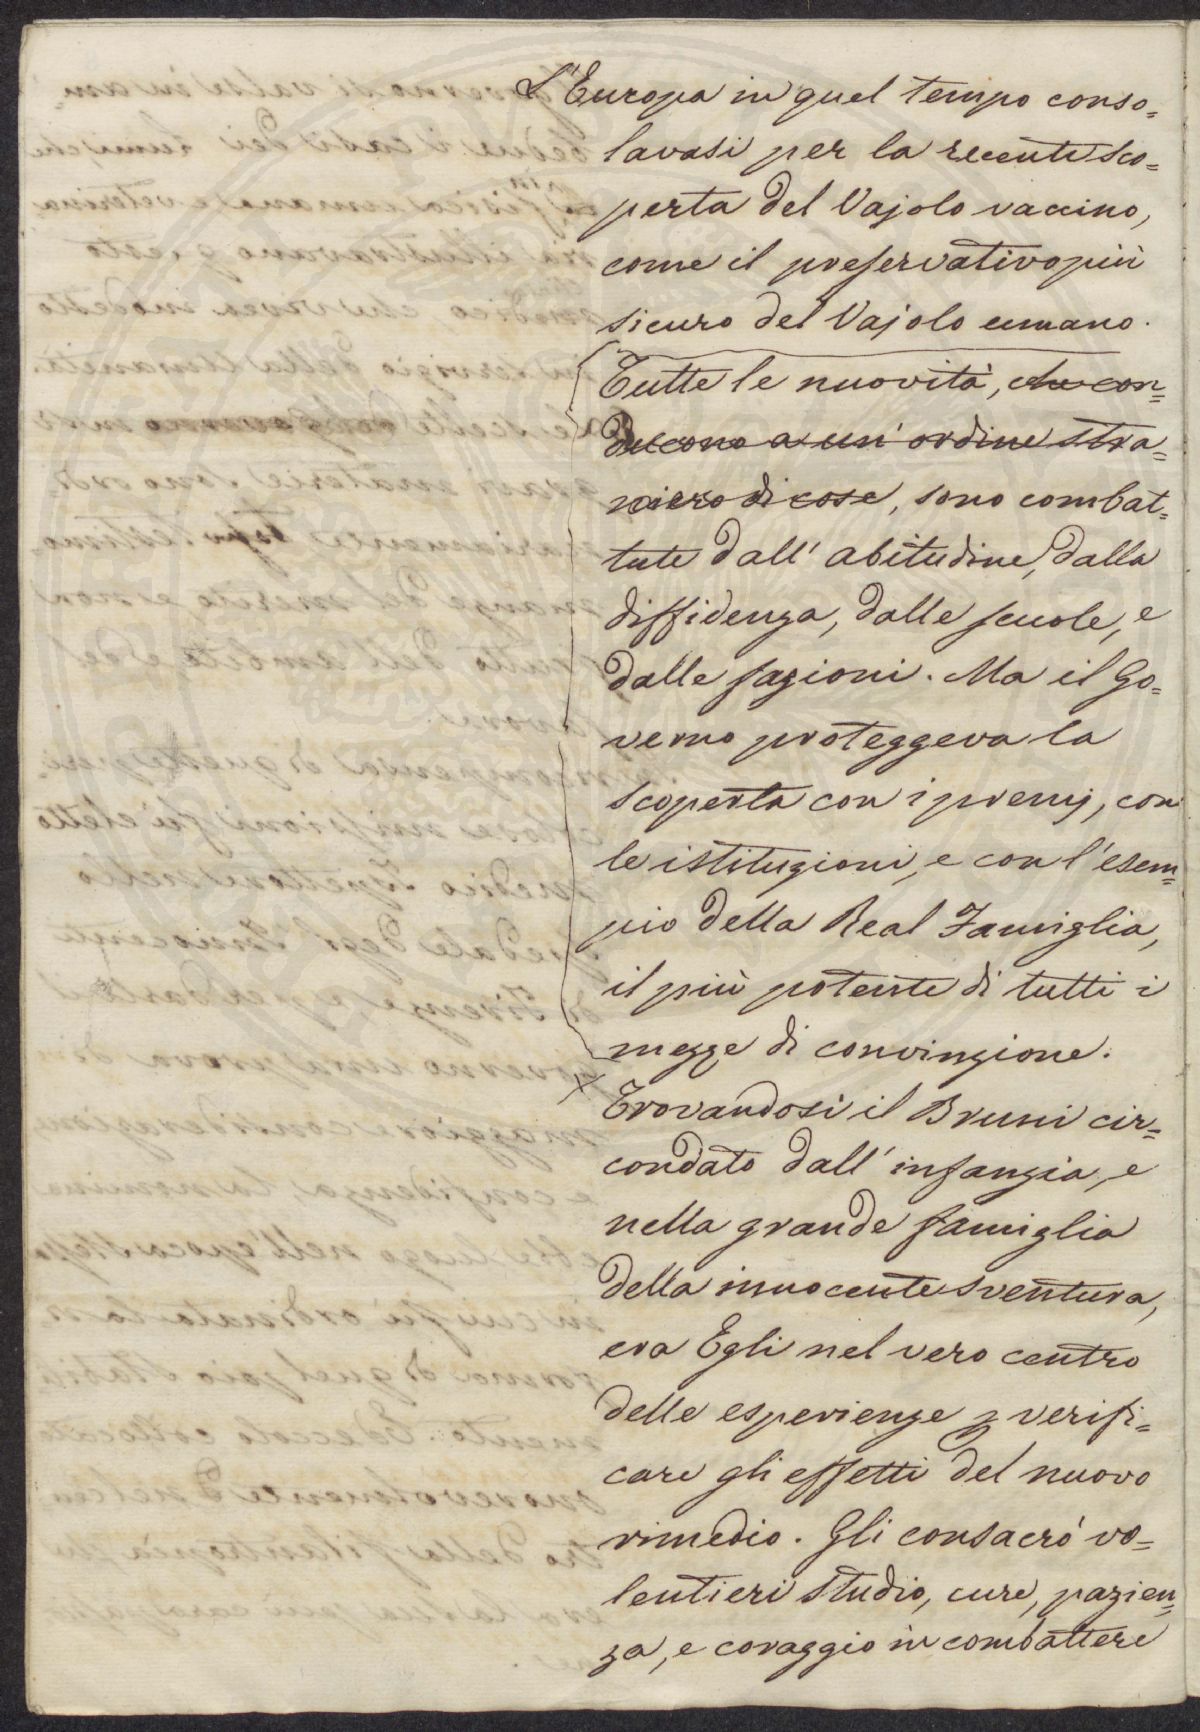 L'Europa in quel tempo conso=
lavasi per la recente sco=
perta del Vajolo vaccino,
come il preservativo più
sicuro del Vajolo umano.
Tutte le nuovità, che con=
ducono a un' ordine stra=
niero di cose, sono combat=
tute dall' abitudine, dalla
diffidenza, dalle scuole, e
dalle fazioni. Ma il Go=
verno proteggeva la
scoperta con i premj, con
le istituzioni, e con l'esem=
pio della Real Famiglia,
il più potente di tutti i
mezze di convinzione.
X
Trovandosi il Bruni cir=
condato dall' infanzia, e
nella grande famiglia
della innocente sventura,
era Egli nel vero centro
delle esperienze p verifi=
care gli effetti del nuovo
rimedio. Gli consacrò vo=
lentieri studio, cure, pazien=
za, e coraggio in combattere